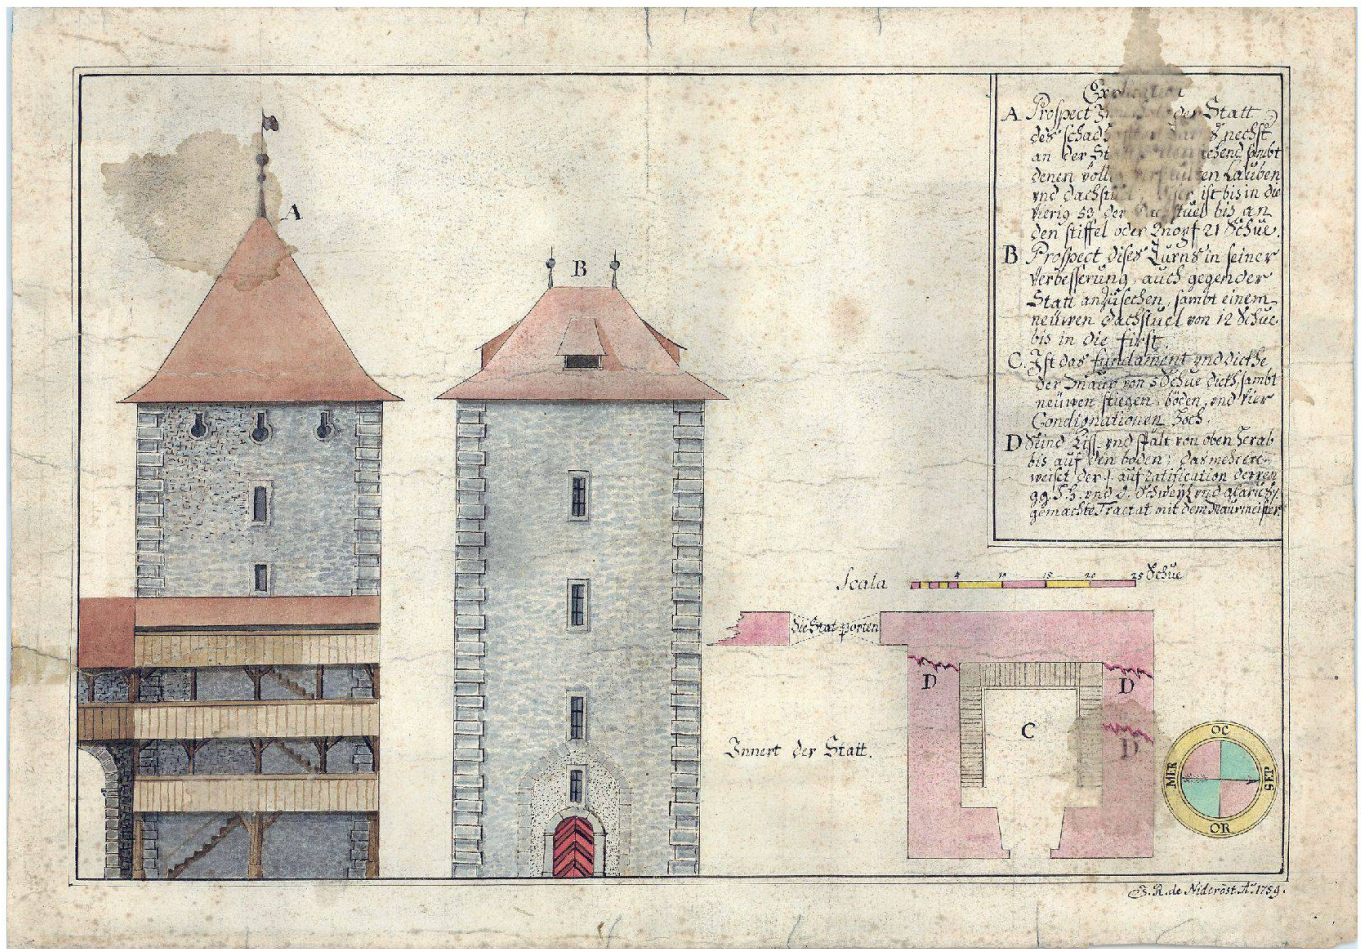 Explication
A Prospect der Statt
des schad nechst
an der St sambt
denen völlig Lauben
und Dachstuel ist bis in die
vierig 53 der Dachstuel bis an
den stiffel oder Knopf 21 Schue.
B Prospect dises Turns in seiner
Verbesserung, auch gegen der
Statt anzusechen, sambt einem
neüwen Dachstuel von 12 Schue
bis in die first.
C. Ist das fundament und dickhe
der Maur von 5 Schue dickh, sambt
neüwen stiegen, böden, und vier
Condignationen hoch.
D Seind Riss und spält von oben herab
bis auf den boden; das mehrere
weiset der auf ratification deren
gg H. H. und O. Schweiz und Glarus
gemachte Tractat mit dem Maurmeister
A
B
Scala 5 10 15 20 25 Schue
die Stat porten
D D
C
D
Innert der Statt.
OC
MER SEP
OR
de Nideröst A° 1759.